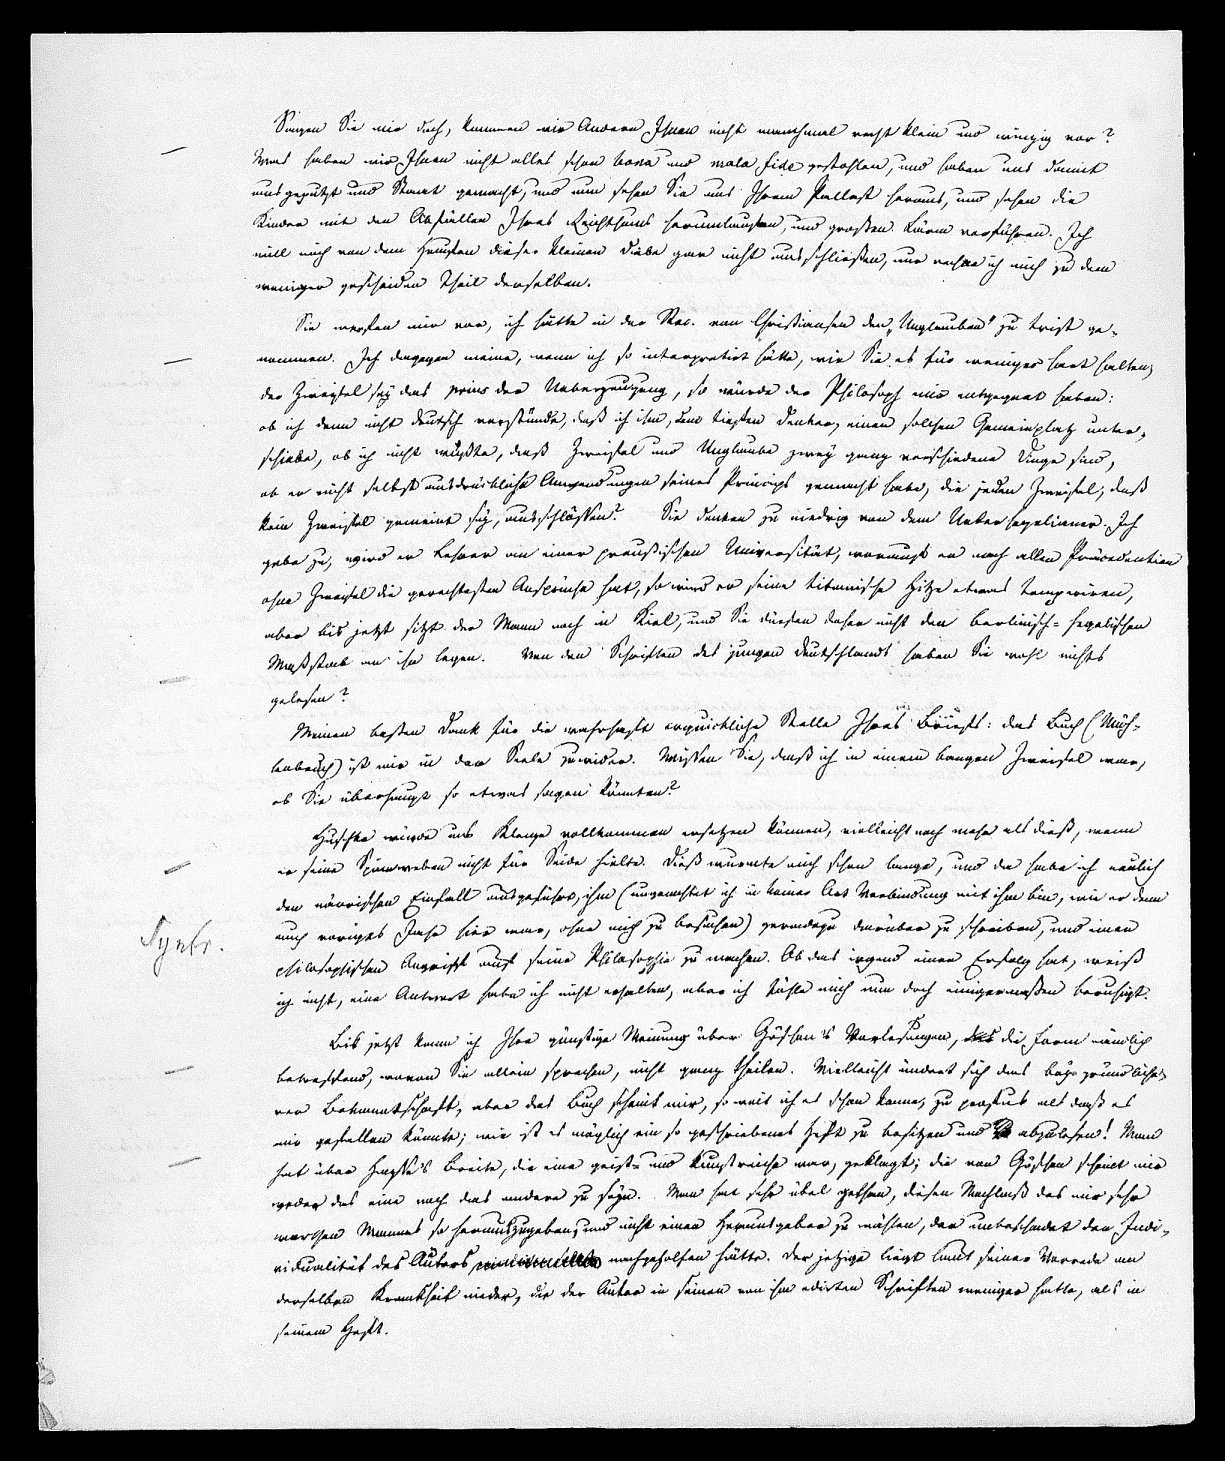 Sagen Sie mir doch, kommen wir Andern Ihnen nicht manchmal recht klein und winzig vor?
Was haben wir Ihnen nicht alles schon bona und mala fide gestohlen, und haben uns damit
ausgeputzt und Staat gemacht, und nun sehen Sie aus Ihrem Pallast heraus, und sehen die
Kinder mit den Abfällen Ihres Reichthums herumlaufen, und großen Lärm verführen. Ich
will mich von dem Haufen dieser kleinen Diebe gar nicht ausschließen, nur rechne ich mich zu dem
weniger gescheiden Theil derselben.
Sie werfen mir vor, ich hätte in der Rec. von Christiansen den „Unglauben“ zu trist ge-
nommen. Ich dagegen meine, wenn ich so interpretirt hätte, wie Sie es für weniger hart halten,
der Zweifel sey das prius der Ueberzeugung, so würde der Philosoph mir entgegnet haben:
ob ich denn nicht deutsch verstünde, daß ich ihm, dem tiefen Denker, einen solchen Gemeinplatz unter-
schiebe, ob ich nicht wüßte, daß Zweifel und Unglaube zwey ganz verschiedene Dinge sind,
ob er nicht selbst ausdrückliche Anwendungen seines Princips gemacht habe, die jeden Zweifel, daß
kein Zweifel gemeint sey, ausschlössen? Sie denken zu niedrig von dem Ueberhegelianer. Ich
gebe zu, wird er Lehrer an einer preußischen Universität, worauf er nach allen Präcedentien
ohne Zweifel die gerechtesten Ansprüche hat, so wird er seine titanische Hitze etwas temperiren,
aber bis jetzt sitzt der Mann noch in Kiel, und Sie dürfen daher nicht den berlinisch-hegelischen
Maßstab an ihn legen. Von den Schriften des jungen Deutschlands haben Sie wohl nichts
gelesen?
Meinen besten Dank für die wahrhaft erquickliche Stelle Ihres Briefs: das Buch (Müh-
lenbruch) ist mir in der Seele zuwider. Wissen Sie, daß ich in einem bangen Zweifel war,
ob Sie überhaupt so etwas sagen könnten?
Huschke würde uns Klenze vollkommen ersetzen können, vielleicht noch mehr als dieß, wenn
er seine Spinnweben nicht für Seide hielte. Dieß wurmte mich schon lange, und da habe ich neulich
den närrischen Einfall ausgeführt, ihm (unerachtet ich in keiner Art Verbindung mit ihm bin, wie er denn
auch voriges Jahr hier war, ohne mich zu besuchen) geradezu darüber zu schreiben, und einen
philosophischen Angriff auf seine Philosophie zu machen. Ob das irgend einen Erfolg hat, weiß
ich nicht, eine Antwort habe ich nicht erhalten, aber ich fühle mich nun doch einigermaßen beruhigt.
Bis jetzt kann ich Ihre günstige Meinung über Göschen's Vorlesungen, die Form nämlich
betreffend, wovon Sie allein sprechen, nicht ganz theilen. Vielleicht ändert sich das bey gründliche-
rer Bekanntschaft, aber das Buch scheint mir, so weit ich es schon kenne, zu confus als daß es
mir gefallen könnte; wie ist es möglich ein so geschriebenes Heft zu besitzen und abzulesen! Man
hat über Hasse's Breite, die eine geist- und kunstreiche war, geklagt; die von Göschen scheint mir
weder das eine noch das andere zu seyn. Man hat sehr übel gethan, diesen Nachlaß des mir sehr
werthen Mannes so herauszugeben, und nicht einen Herausgeber zu wählen, der unbeschadet der Indi-
vidualität des Autors nachgeholfen hätte. Der jetzige liegt laut seiner Vorrede an
derselben Krankheit nieder, die der Autor in seinen von ihm edirten Schriften weniger hatte, als in
seinem Heft.